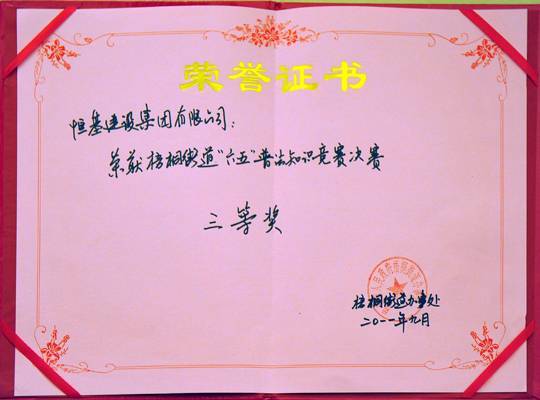 荣誉证书
恒基建设集团有限公司：
荣获梧桐街道“六五”普法知识竞赛决赛
三等奖
梧桐街道办事处
二〇一一年九月